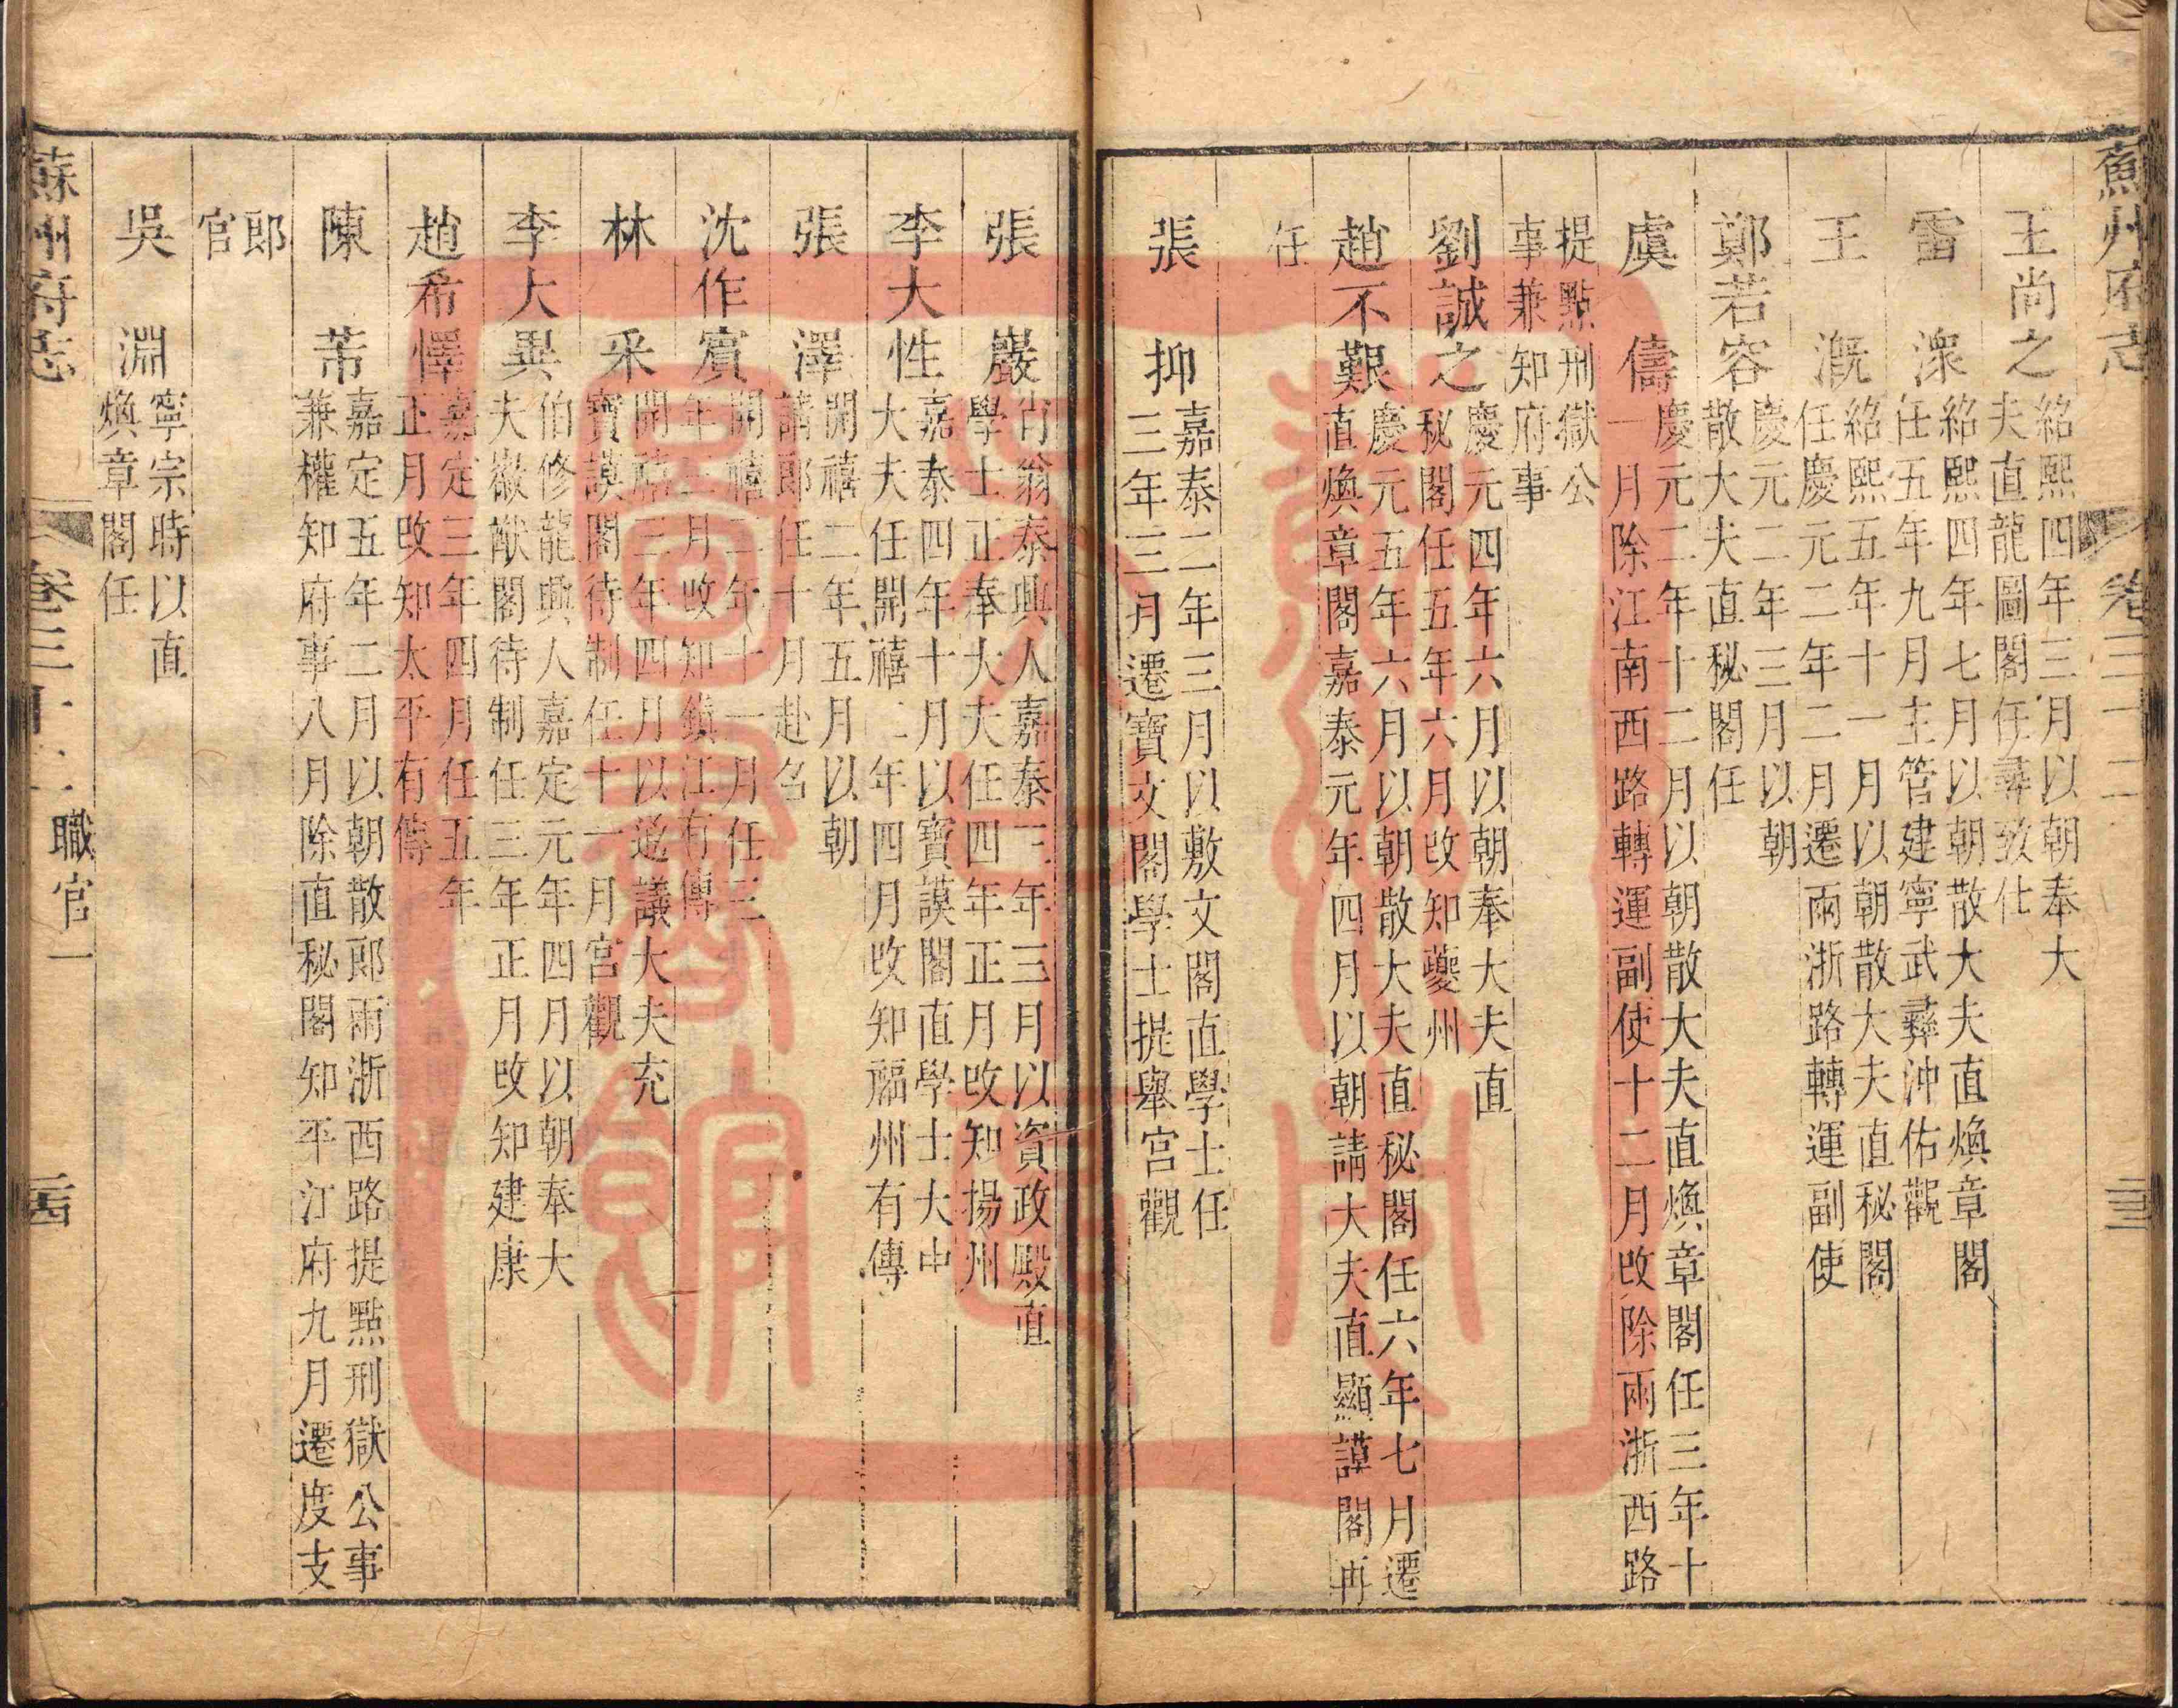 蘇州府志 卷三十二 三
王尚之 紹熙四年三月以朝奉大
夫直龍圖閣任尋致仕
雷潨 紹熙四年七月以朝散大夫直煥章閣
任五年九月主管建寧武彞沖佑觀
王溉 紹熙五年十一月以朝散大夫直秘閣
任慶元二年二月遷兩浙路轉運副使
鄭若容 慶元二年三月以朝
散大夫直秘閣任
虞儔 慶元二年十二月以朝散大夫直煥章閣任三年十
一月除江南西路轉運副使十二月改除兩浙西路
提點刑獄公
事兼知府事
劉誠之 慶元四年六月以朝奉大夫直
秘閣任五年六月改知夔州
趙不艱 慶元五年六月以朝散大夫直秘閣任六年七月遷
直煥章閣嘉泰元年四月以朝請大夫直顯謨閣再
任
張抑 嘉泰二年三月以敷文閣直學士任
三年三月遷寶文閣學士提舉宮觀
張巖 肖翁泰興人嘉泰三年三月以資政殿直
學士正奉大夫任四年正月改知揚州
李大性 嘉泰四年十月以寶謨閣直學士大中
大夫任開禧二年四月改知福州有傳
張澤 開禧二年五月以朝
請郎任十月赴召
沈作賓 開禧二年十一月任三
年三月改知鎮江有傳
林采 開禧三年四月以通議大夫充
寶謨閣待制任十一月宮觀
李大異 伯修龍興人嘉定元年四月以朝奉大
夫徽猷閣待制任三年正月改知建康
趙希懌 嘉定三年四月任五年
正月改知太平有傳
陳芾 嘉定五年二月以朝散郎兩浙西路提點刑獄公事
兼權知府事八月除直秘閣知平江府九月遷度支
郎
官
吳淵 寧宗時以直
煥章閣任
蘇州府志 卷三十二 職官一 西